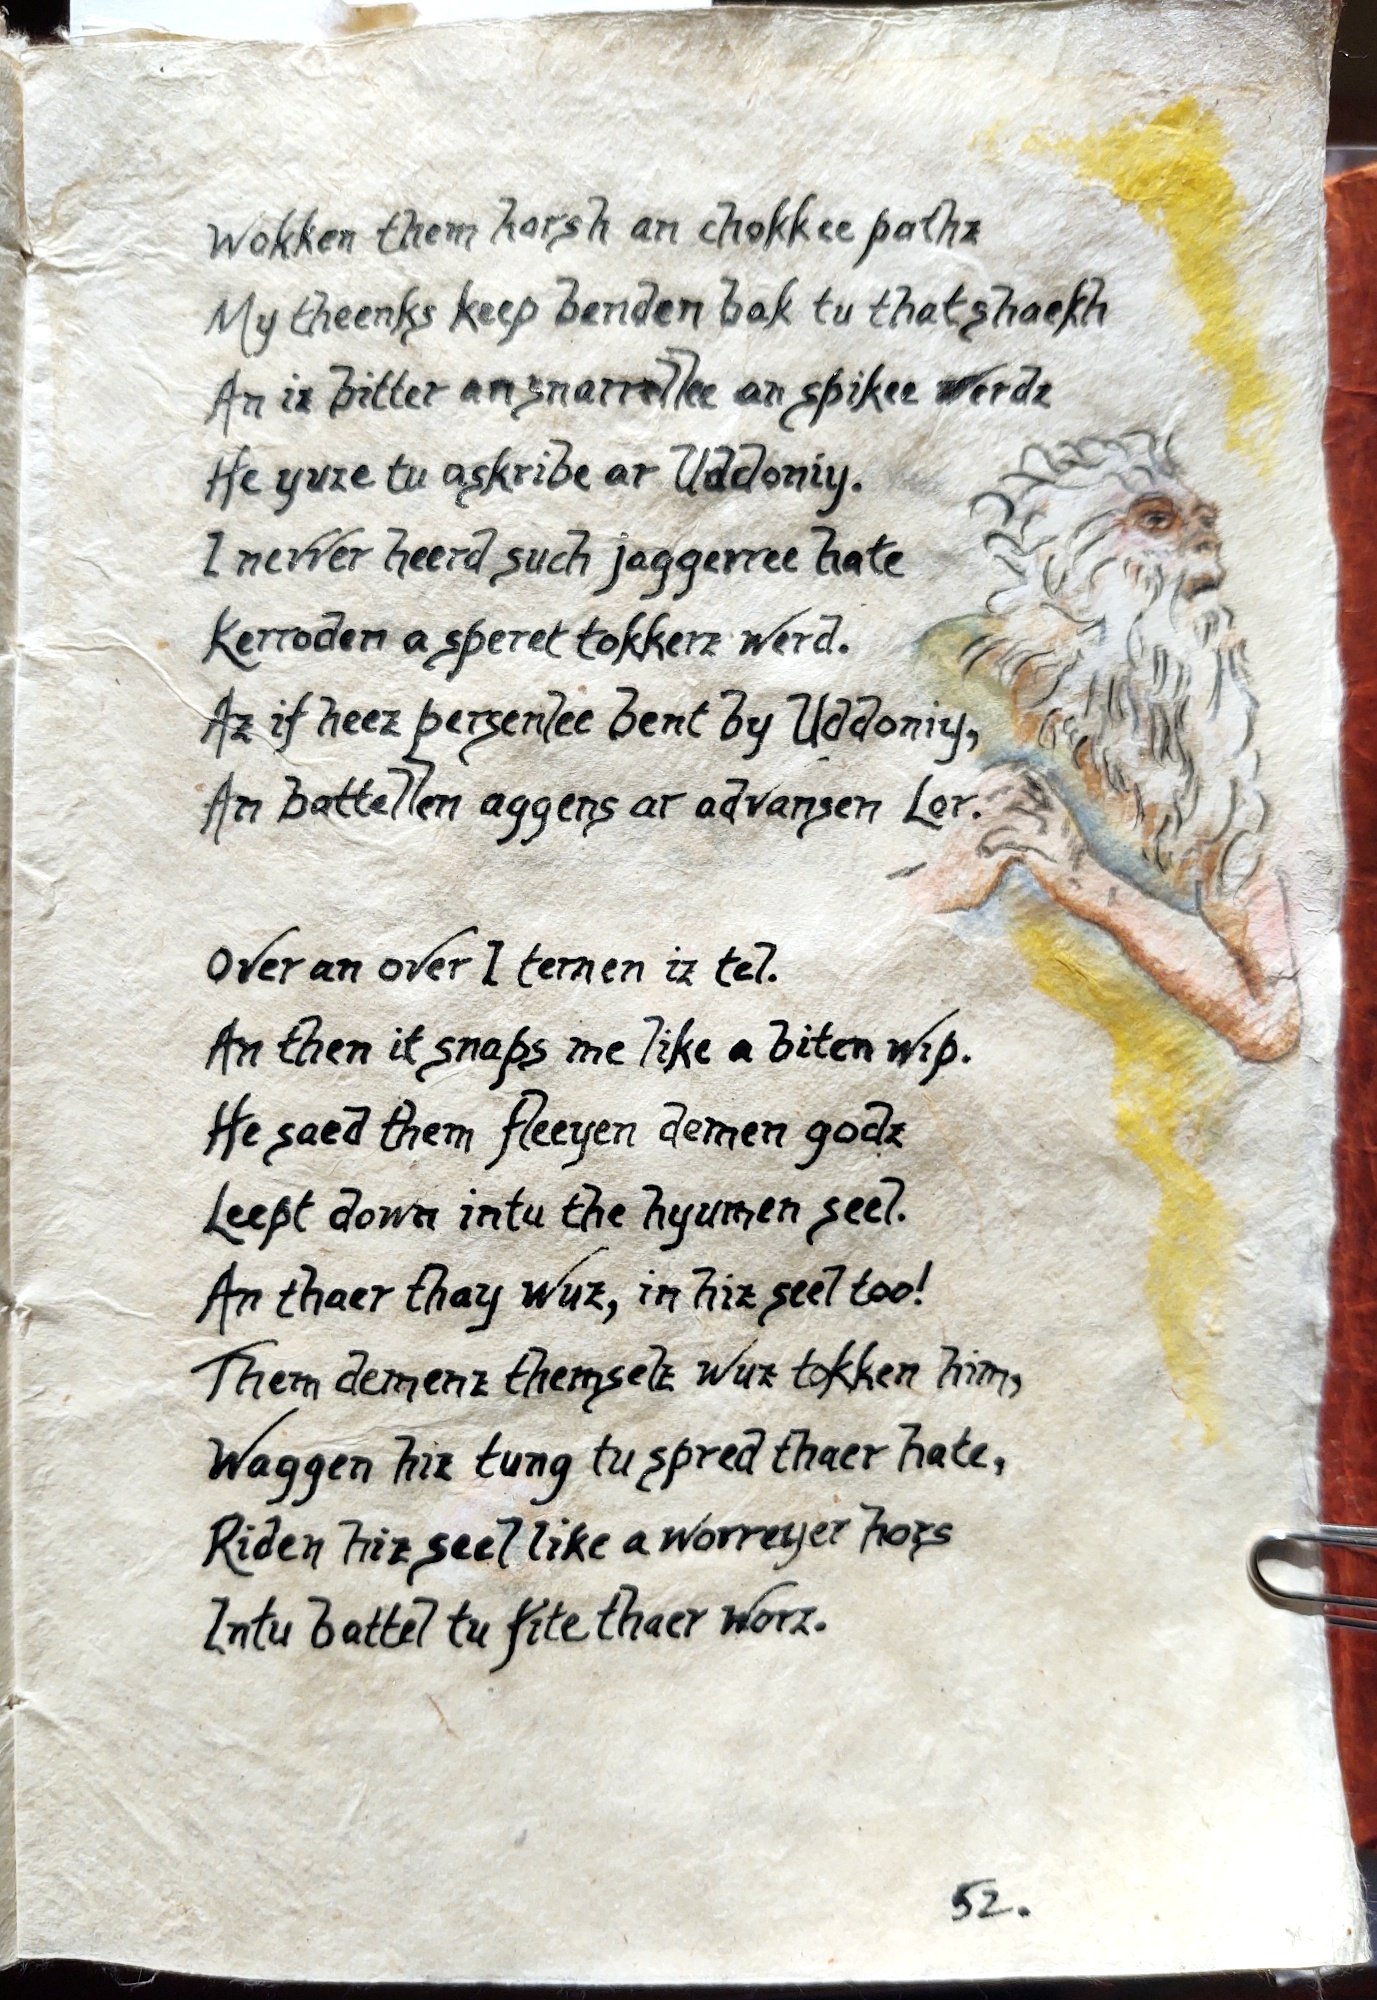 Wokken them harsh an chokkee pathz
My theenks keep benden bak tu that shaekh
An iz bitter an snarrellee an spikee werdz
He yuze tu askribe ar Uddoniy.
I nevver heerd such jaggerree hate
Kerroden a speret tokkerz werd.
Az if heez persenlee bent by Uddoniy,
An battellen aggens ar advansen Lor.
Over an over I ternen iz tel.
An then it snaps me like a biten wip.
He saed them fleeyen demen godz
Leept down intu the hyumen seel.
An thaer thay wuz, in hiz seel too!
Them demenz themselz wuz tokken him,
Waggen hiz tung tu spred thaer hate,
Riden hiz seel like a worreyer hors
Intu battel tu fite thaer worz.
52.